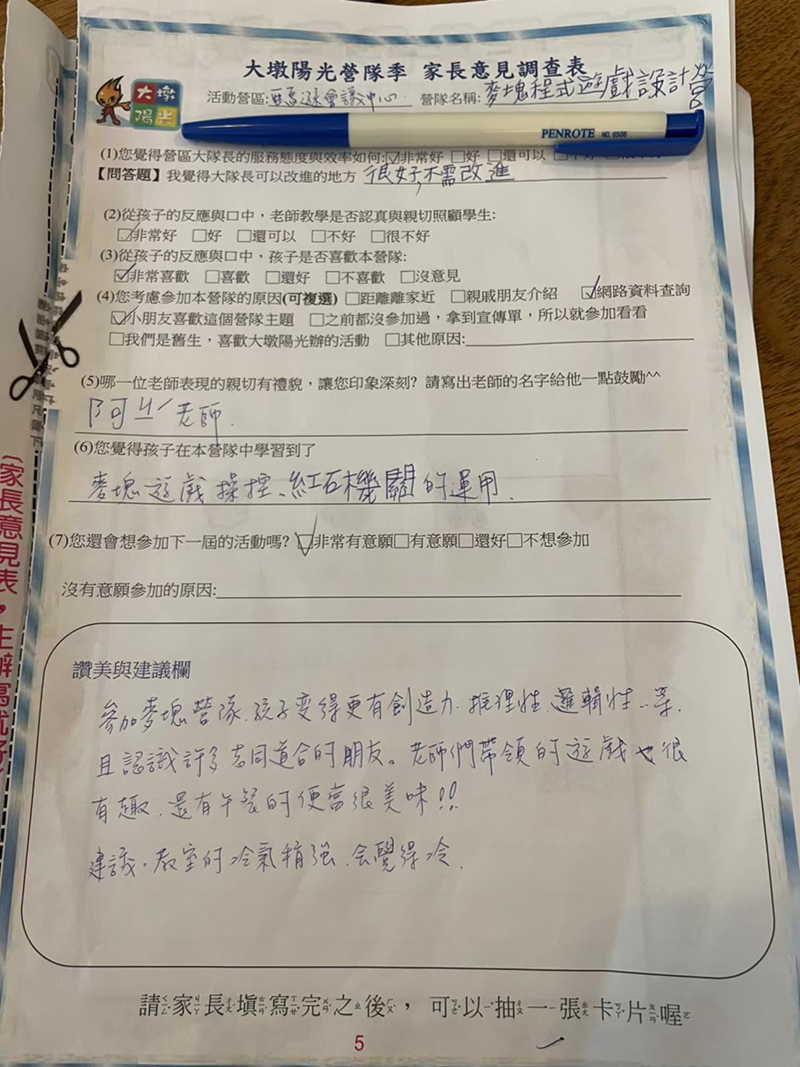 大墩陽光營隊季 家長意見調查表
大墩
陽光
活動營區:亞馬遜會議中心 營隊名稱:麥塊程式遊戲設計營
PENROTE NO. 6506
(1)您覺得營區大隊長的服務態度與效率如何:☑非常好 □好 □還可以
【問答題】我覺得大隊長可以改進的地方 很好,不需改進
(2)從孩子的反應與口中，老師教學是否認真與親切照顧學生:
☑非常好 □好 □還可以 □不好 □很不好
(3)從孩子的反應與口中，孩子是否喜歡本營隊:
☑非常喜歡 □喜歡 □還好 □不喜歡 □沒意見
(4)您考慮參加本營隊的原因(可複選) □距離離家近 □親戚朋友介紹 ☑網路資料查詢
☑小朋友喜歡這個營隊主題 □之前都沒參加過，拿到宣傳單，所以就參加看看
□我們是舊生，喜歡大墩陽光辦的活動 □其他原因:
(5)哪一位老師表現的親切有禮貌，讓您印象深刻? 請寫出老師的名字給他一點鼓勵^^
阿ㄐㄧˊ老師.
(6)您覺得孩子在本營隊中學習到了
麥塊遊戲操控、紅石機關的運用.
(7)您還會想參加下一屆的活動嗎? ☑非常有意願□有意願□還好□不想參加
沒有意願參加的原因:
讚美與建議欄
參加麥塊營隊,孩子变得更有創造力.推理性.邏輯性…等.
且認識許多志同道合的朋友。老師們帶領的遊戲也很
有趣.還有午餐的便當很美味!!
建議.教室的冷氣稍強.会覺得冷.
請家長填寫完之後，可以抽一張卡片喔
5
(家長意見表，主辦寫就好